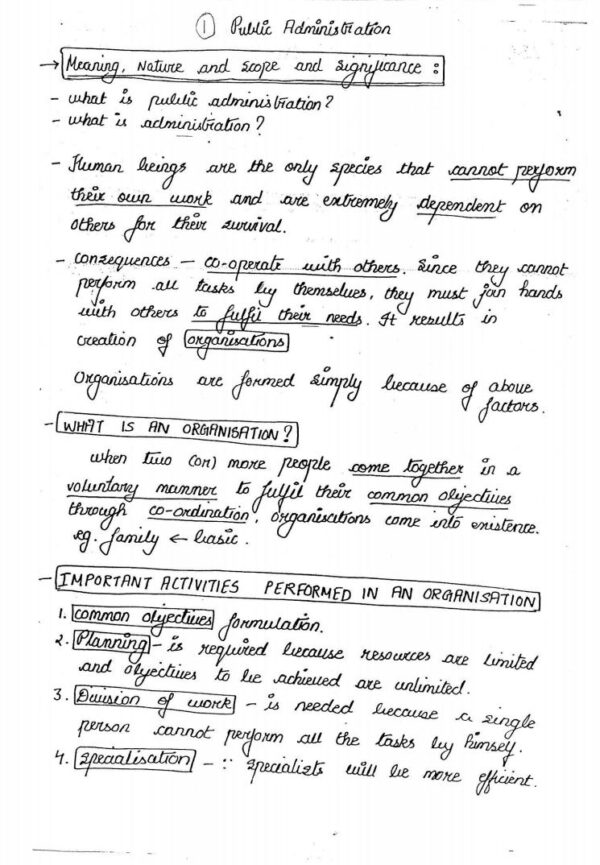 ① Public Administration
→ Meaning, Nature and Scope and Significance :
- what is public administration?
- what is administration?
- Human beings are the only species that cannot perform
their own work and are extremely dependent on
others for their survival.
- Consequences - co-operate with others. Since they cannot
perform all tasks by themselves, they must join hands
with others to fulfil their needs. It results in
creation of organisations
Organisations are formed simply because of above
factors.
- WHAT IS AN ORGANISATION?
when two (or) more people come together in a
voluntary manner to fulfil their common objectives
through co-ordination, organisations come into existence.
eg. family ← basic.
- IMPORTANT ACTIVITIES PERFORMED IN AN ORGANISATION
1. common objectives formulation.
2. Planning - is required because resources are limited
and objectives to be achieved are unlimited.
3. Division of work - is needed because a single
person cannot perform all the tasks by himself.
4. specialisation - ∵ specialists will be more efficient.